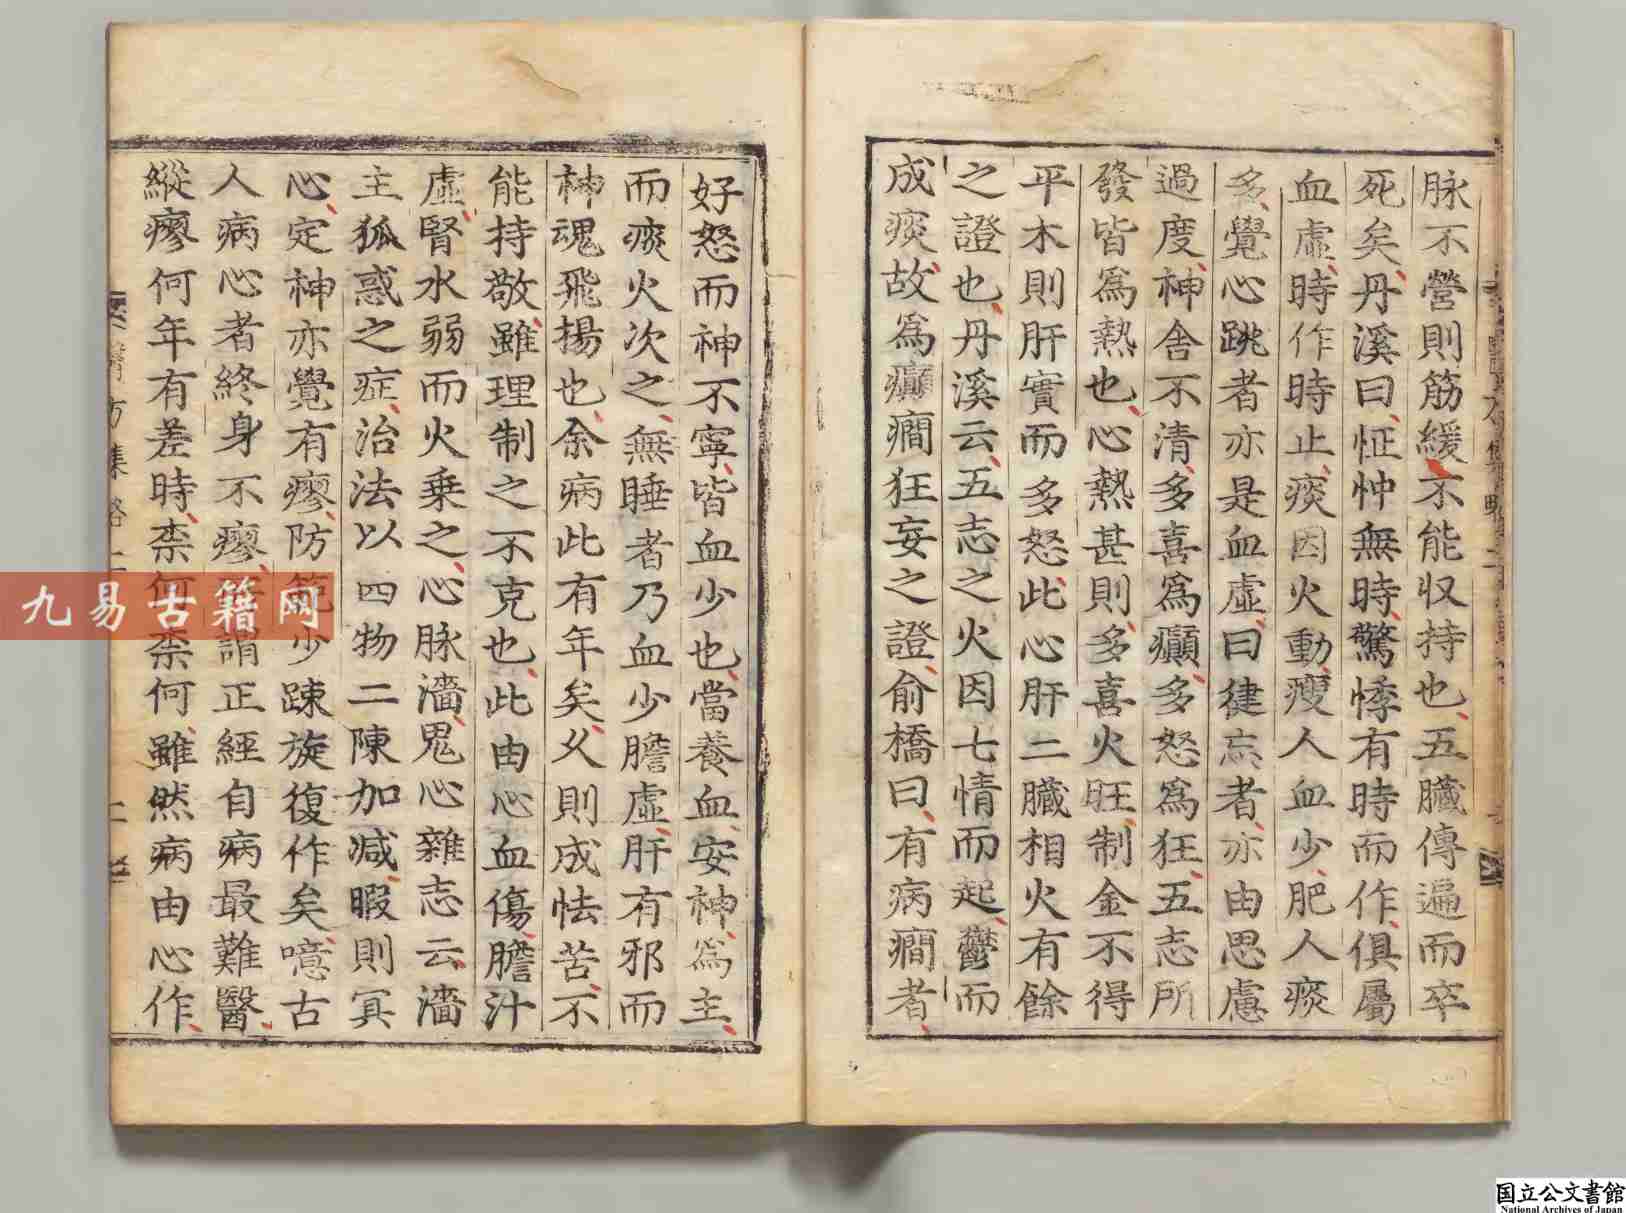 脉不營則筋緩不能収持也五臓傳遍而卒
死矣丹溪曰怔忡無時驚悸有時而作俱屬
血虛時作時止痰因火動瘦人血少肥人痰
多覺心跳者亦是血虛曰徤忘者亦由思慮
過度神舎不清多喜爲癲多怒爲狂五志所
發皆爲熱也心熱甚則多喜火旺制金不得
平木則肝實而多怒此心肝二臓相火有餘
之證也丹溪云五志之火因七情而起鬱而
成痰故爲癲癇狂妄之證俞橋曰有病癇者
好怒而神不寧皆血少也當養血安神爲主
而痰火次之無睡者乃血少膽虛肝有邪而
神魂飛揚也余病此有年矣乆則成怯苦不
能持敬雖理制之不克也此由心血傷膽汁
虛腎水弱而火乗之心脉濇鬼心雜志云濇
主狐惑之症治法以四物二陳加减暇則冥
心定神亦覺有瘳防範少踈旋復作矣噫古
人病心者終身不瘳謂正經自病最難醫
縱瘳何年有差時柰何柰何雖然病由心作
濟方集畧
九易古籍网
国立公文書館
National Archives of Japan